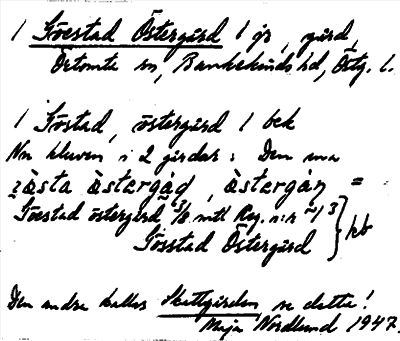 1 Göestad Östergård 1 jr, gård,
Örtomta sn, Bankekinds hd, Östg. l.
1 Göstad, östergård 1 bek
Nu kluven i 2 gårdar: Den ena
åstergån =
Göestad östergård 3/8 mtl Reg. n:r
Gösstad Östergård } hb
Den andra kallas Skattgården, se detta!
Maja Nordlund 1947.